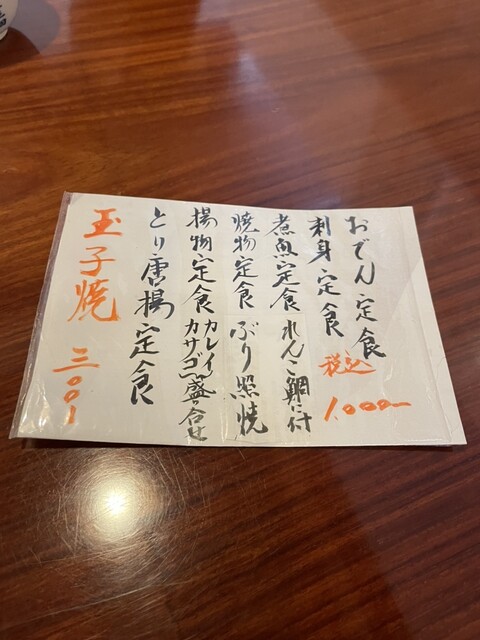 おでん定食
刺身定食
税込
1,000-
煮魚定食 れんこ鯛に付
焼物定食 ぶり照焼
揚物定食 カレイ カサゴ 盛り合せ
とり唐揚定食
玉子焼 三〇〇-